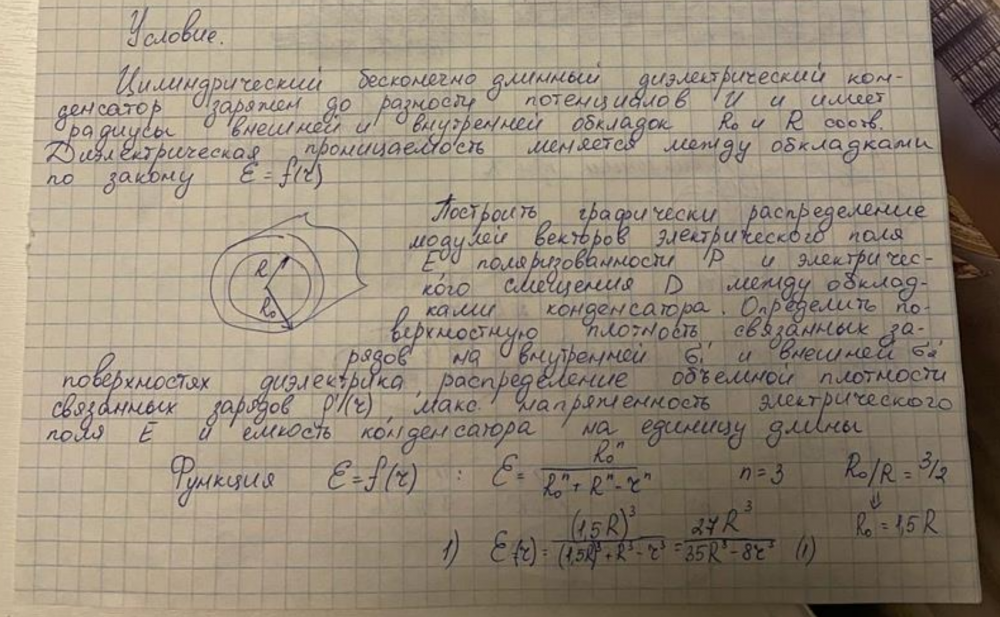 Условие.
Цилиндрический бесконечно длинный диэлектрический кон-
денсатор заряжен до разности потенциалов U и имеет
радиусы внешней и внутренней обкладок R₀ и R соотв.
Диэлектрическая проницаемость меняется между обкладками
по закону Ɛ = f(r)
Построить графически распределение
модулей векторов электрического поля
E поляризованности P и электричес-
кого смещения D между обклад-
ками конденсатора. Определить по-
верхностную плотность связанных за-
рядов на внутренней σ₁' и внешней σ₂'
поверхностях диэлектрика распределение объемной плотности
связанных зарядов ρ'(r) макс. напряженность электрического
поля E и емкость конденсатора на единицу длины
R
R₀
Функция Ɛ = f(r) : Ɛ = R₀ⁿ / (R₀ⁿ + Rⁿ - rⁿ) n = 3 R₀/R = 3/2
↓
R₀ = 1,5R
1) Ɛ(r) = (1,5R)³ / ((1,5R)³ + R³ - r³) = 27R³ / (35R³ - 8r³) (1)